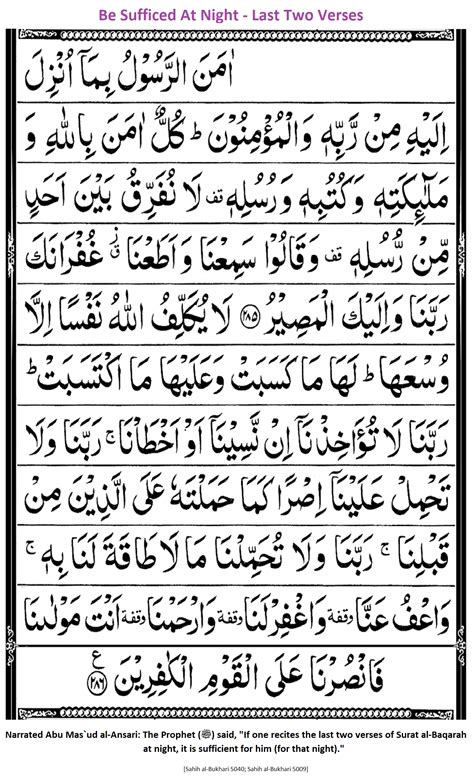 Be Sufficed At Night - Last Two Verses
اٰمَنَ الرَّسُوْلُ بِمَاۤ اُنْزِلَ
اِلَيْهِ مِنْ رَّبِّهٖ وَالْمُؤْمِنُوْنَ ؕ كُلٌّ اٰمَنَ بِاللّٰهِ وَ
مَلٰٓئِكَتِهٖ وَكُتُبِهٖ وَرُسُلِهٖ قف لَا نُفَرِّقُ بَيْنَ اَحَدٍ
مِّنْ رُّسُلِهٖ قف وَقَالُوْا سَمِعْنَا وَاَطَعْنَا ق غُفْرَانَكَ
رَبَّنَا وَاِلَيْكَ الْمَصِيْرُ ﴿۲۸۵﴾ لَا يُكَلِّفُ اللّٰهُ نَفْسًا اِلَّا
وُسْعَهَا ؕ لَهَا مَا كَسَبَتْ وَعَلَيْهَا مَا اكْتَسَبَتْ ؕ
رَبَّنَا لَا تُؤَاخِذْنَاۤ اِنْ نَّسِيْنَاۤ اَوْ اَخْطَاْنَا ۚ رَبَّنَا وَلَا
تَحْمِلْ عَلَيْنَاۤ اِصْرًا كَمَا حَمَلْتَهٗ عَلَى الَّذِيْنَ مِنْ
قَبْلِنَا ۚ رَبَّنَا وَلَا تُحَمِّلْنَا مَا لَا طَاقَةَ لَنَا بِهٖ ۚ
وَاعْفُ عَنَّا وقفة وَاغْفِرْلَنَا وقفة وَارْحَمْنَا وقفة اَنْتَ مَوْلٰىنَا
فَانْصُرْنَا عَلَى الْقَوْمِ الْكٰفِرِيْنَ ﴿۲۸۶﴾ ع
Narrated Abu Mas`ud al-Ansari: The Prophet (ﷺ) said, "If one recites the last two verses of Surat al-Baqarah
at night, it is sufficient for him (for that night)."
[Sahih al-Bukhari 5040; Sahih al-Bukhari 5009]